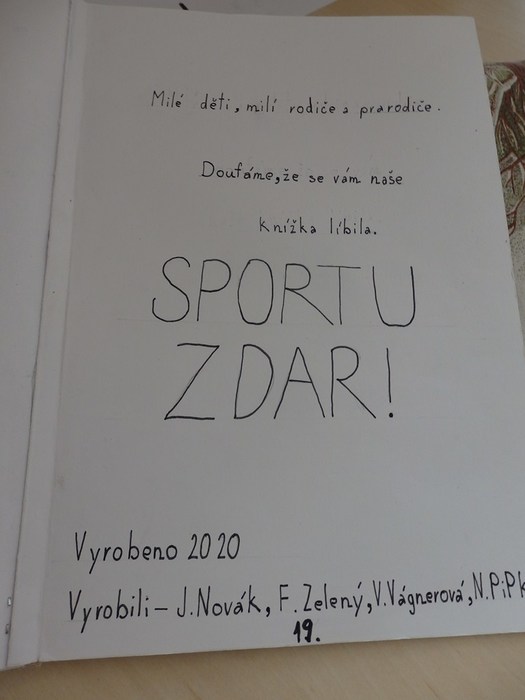 Milé děti, milí rodiče a prarodiče.
Doufáme, že se vám naše
knížka líbila.
SPORTU
ZDAR!
Vyrobeno 2020
Vyrobili - J. Novák, F. Zelený, V. Vágnerová, N.
19.